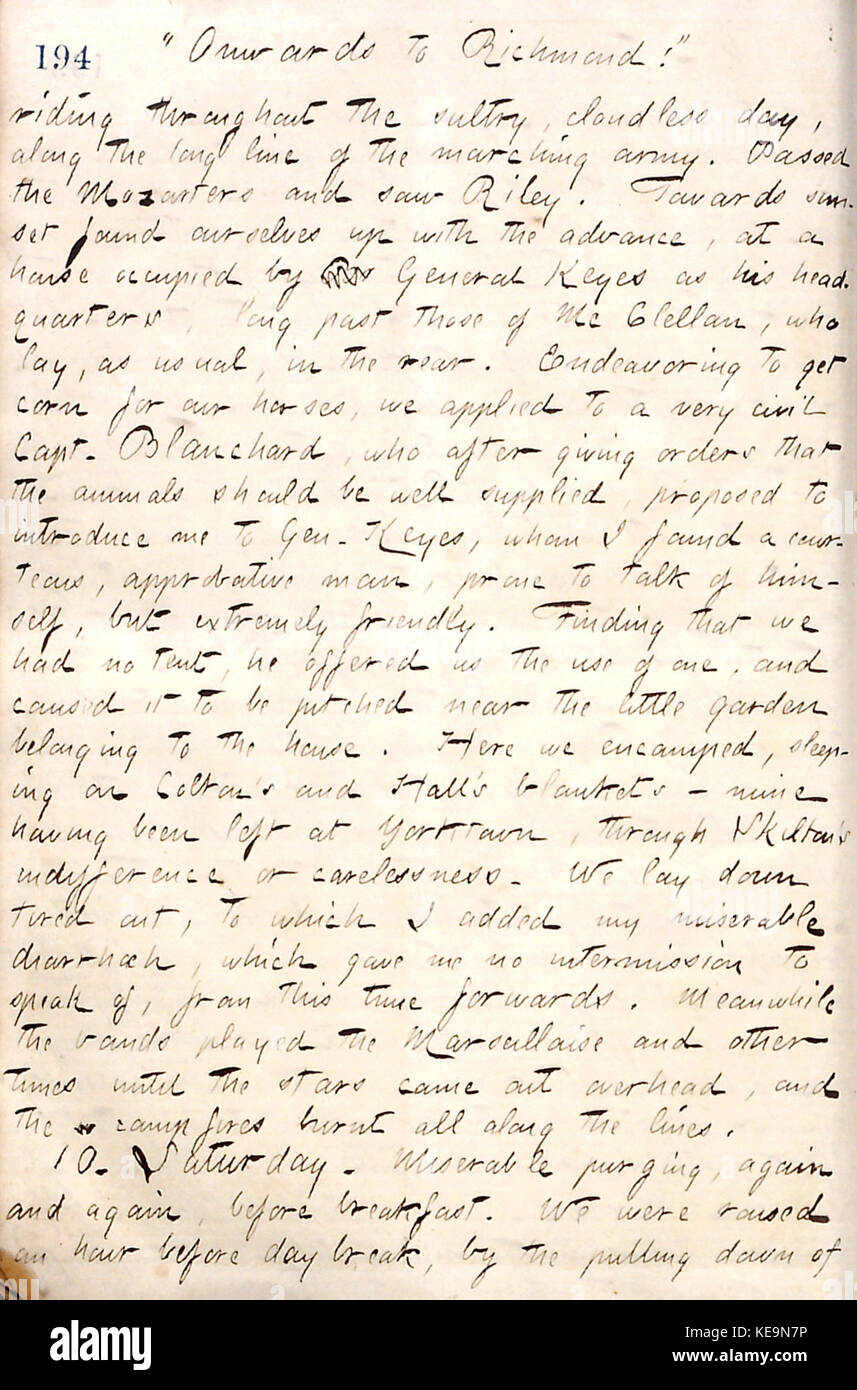 194 "Onwards to Richmond!"
riding throughout the sultry, cloudless day,
along the long line of the marching army. Passed
the Mozarters and saw Riley. Towards sun-
set found ourselves up with the advance, at a
house occupied by General Keyes as his head-
quarters, long past those of Mc Clellan, who
lay, as usual, in the rear. Endeavoring to get
corn for our horses, we applied to a very civil
Capt. Blanchard, who after giving orders that
the animals should be well supplied, proposed to
introduce me to Gen. Keyes, whom I found a cour-
teous, approbative man, prone to talk of him-
self, but extremely friendly. Finding that we
had no tent, he offered us the use of one, and
caused it to be pitched near the little garden
belonging to the house. Here we encamped, sleep-
ing on Colton's and Hall's blankets - mine
having been left at Yorktown, through Skilton's
indifference or carelessness. We lay down
tired out, to which I added my miserable
diarrhœh, which gave me no intermission to
speak of, from this time forwards. Meanwhile
the bands played the Marseillaise and other
tunes until the stars came out overhead, and
the campfires burnt all along the lines.
10. Saturday. Miserable purging, again
and again, before breakfast. We were roused
an hour before daybreak, by the pulling down of
alamy
Image ID: KE9N7P
www.alamy.com